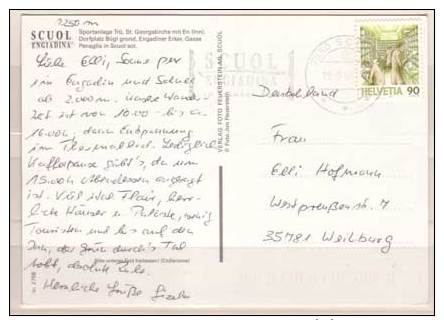 1250 m
SCUOL
ENGIADINA
Sportanlage Trü, St. Georgskirche mit En (Inn),
Dorfplatz Bügl grond, Engadiner Erker, Gasse
Panaglia in Scuol sot.
Liebe Elli, Sonne pur
im Engadin und Schnee
ab 2.000 m. Unsere Wander-
zeit ist von 10.00 – bis ca
16.00 h, dann Entspannung
im Thermalbad. Lediglich
Kaffeepause gibt's, da um
Abendessen angesagt
ist. Viel Flair, herr-
liche Häuser u. Paläste, wenig
Touristen und bis auf den
Inn, der durch's Tal
tobt, absolute Ruhe.
Herzliche Grüße
SCUOL
ENGIADINA
VERLAG FOTO FEUERSTEIN AG, SCUOL
© Foto Jon Feuerstein
HELVETIA 90
Deutschland
Frau
Elli Hofmann
Westpreußenstr. 7
35781 Weilburg